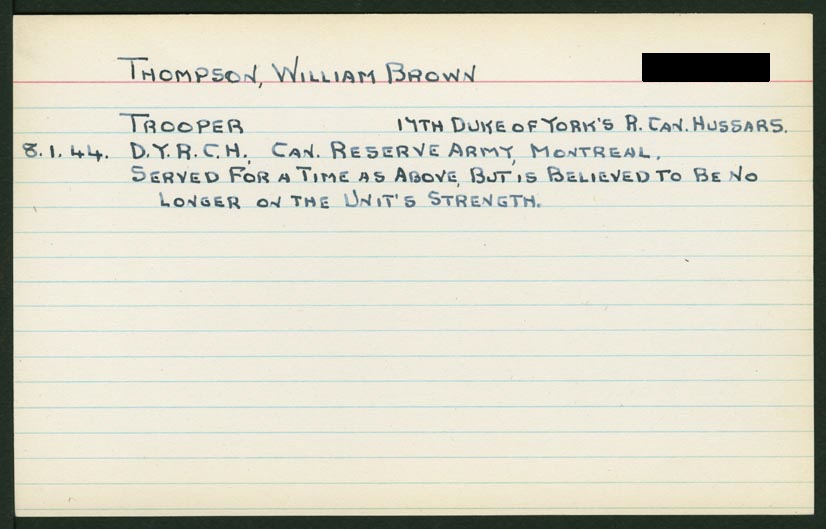 THOMPSON, WILLIAM BROWN
TROOPER 17TH DUKE OF YORK'S R. CAN. HUSSARS.
8.1.44. D.Y.R.C.H., CAN. RESERVE ARMY, MONTREAL.
SERVED FOR A TIME AS ABOVE, BUT IS BELIEVED TO BE NO
LONGER ON THE UNIT'S STRENGTH.